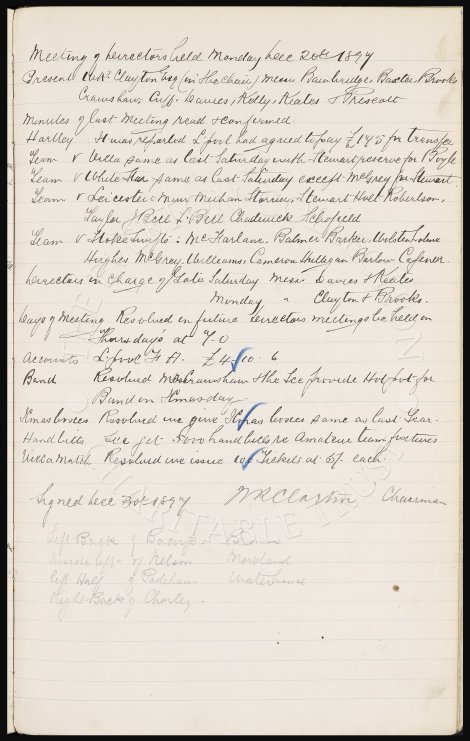 Meeting of Directors held Monday Dec 20th 1897
Present W.R. Clayton Esq (in the chair) Messrs Bainbridge, Baxter, Brooks
Crawshaw Cuff. Davies, Kelly, Keates & Prescott
Minutes of last Meeting read & confirmed
Hartley It was reported L'pool had agreed to pay £145 for transfer
Team v Villa same as last Saturday with Stewart reserve for Boyle
Team v White Star same as last Saturday except McGrey for Stewart.
Team v Leicester = Muir Meehan Storrier, Stewart Holt Robertson,
Taylor J Bell L. Bell Chadwick Schofield
Team v Stoke Swifts = McFarlane, Balmer Barker, Wolstenholme
Hughes McGrey, Williams Cameron Mulligan Barlow
Directors in Charge of Gate Saturday Messrs Davies & Keates
Monday " Clayton & Brooks.
Days of Meeting Resolved in future Directors meetings be held on
Thursday's at 7-0
Accounts L'pool F A. £4-10-6
Band Resolved Mr Crawshaw & the Sec provide Hot pot for
Band on Xmas day
Xmas boxes Resolved we give Xmas boxes same as last Year.
Hand bills Sec get 5000 hand bills re Amateur team fixtures
Villa Match Resolved we issue 100 Tickets at 5/- each.
Signed Dec 1897 W R Clayton Chairman
Left Back of Bacup
of Nelson Moreland
left Half of Padiham Waterhouse
Right Back of Chorley -
CHARITABLE TRUST